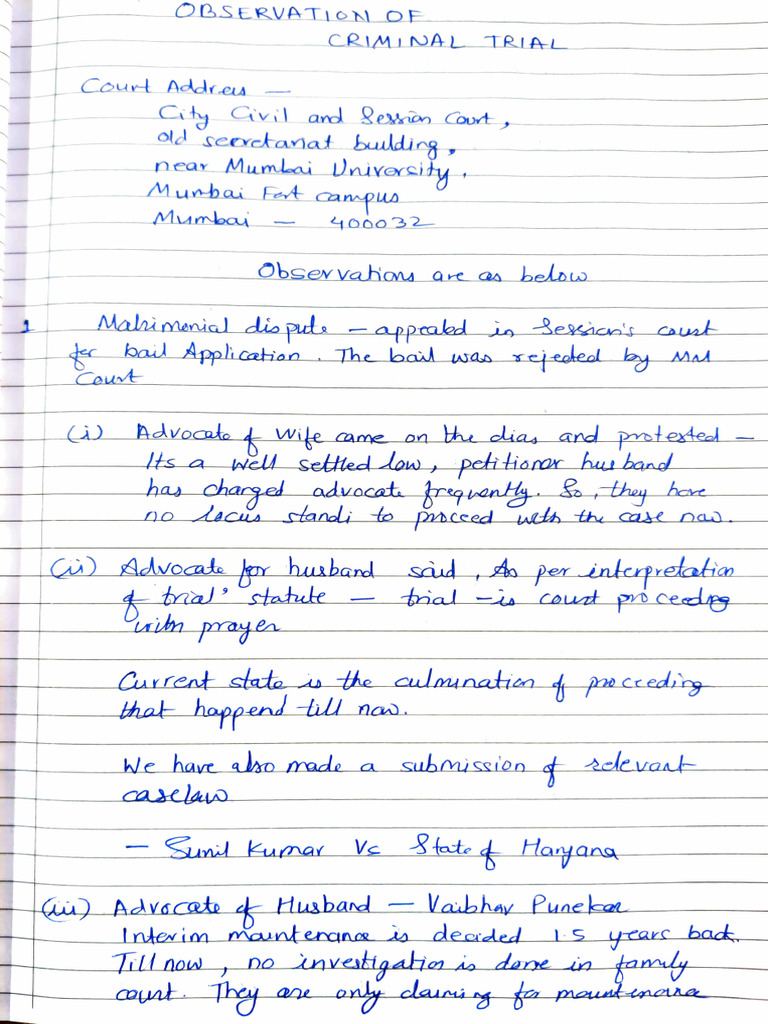 OBSERVATION OF
CRIMINAL TRIAL
Court Address —
City Civil and Session Court,
old secretariat building,
near Mumbai University.
Mumbai Fort campus
Mumbai — 400032
Observations are as below
1 Matrimonial dispute — appealed in Session's court
for bail Application. The bail was rejected by MM
Court
(i) Advocate of wife came on the dias and protested —
Its a well settled law, petitioner husband
has charged advocate frequently. So, they have
no locus standi to proceed with the case now.
(ii) Advocate for husband said, As per interpretation
of trial' statute — trial — is court proceeding
with prayer
Current state is the culmination of proceeding
that happend till now.
We have also made a submission of relevant
caselaw
— Sunil Kumar Vs State of Haryana
(iii) Advocate of Husband — Vaibhav Punekar
Interim maintenance is decided 1.5 years back.
Till now, no investigation is done in family
court. They are only claiming for maintenance